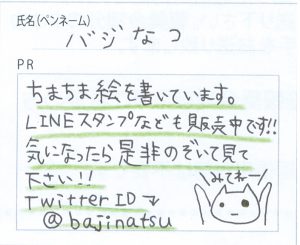 氏名(ペンネーム)
バジなつ
PR
ちまちま絵を書いています。
LINEスタンプなども販売中です!!
気になったら是非のぞいて見て
下さい!!
みてねー
Twitter ID↘
@bajinatsu